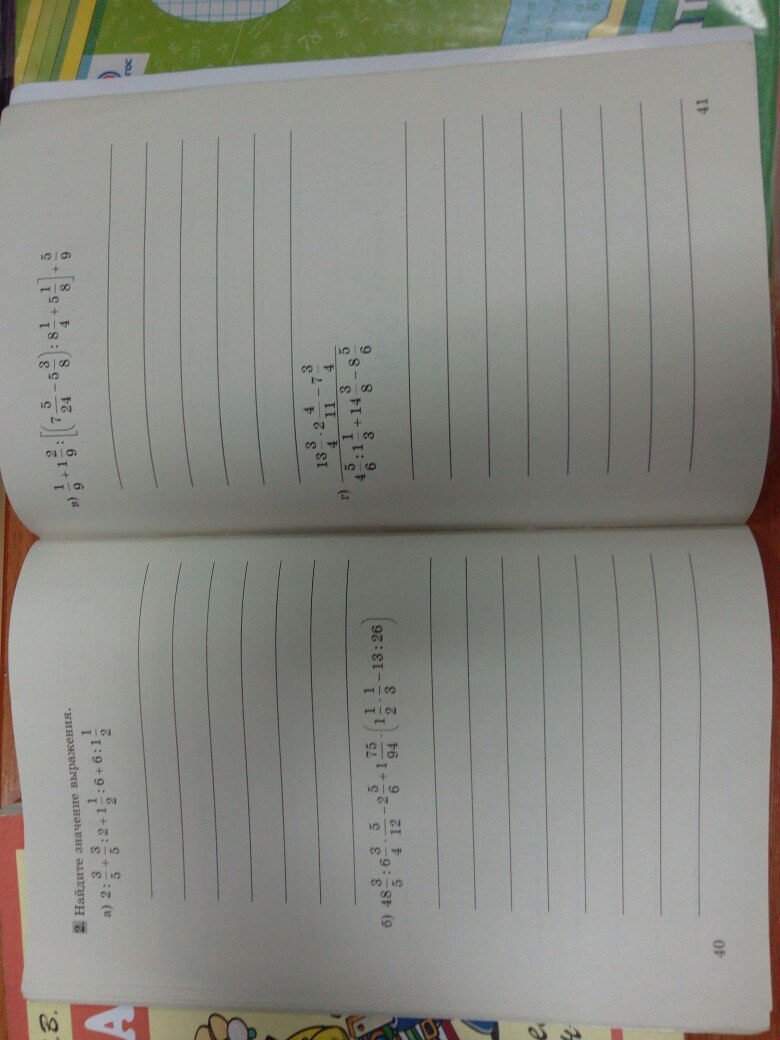 2. Найдите значение выражения.
а) 2 : 3/5 + 3/5 : 2 + 1 1/2 : 6 + 6 : 1 1/2
б) 48 3/5 : 6 3/4 · 5/12 − 2 5/6 + 1 75/94 · (1 1/2 · 1/3 − 13 : 26)
40
в) 1/9 + 1 2/9 : [(7 5/24 − 5 3/8) : 8 1/4 + 5 1/8] + 5/9
г) (13 3/4 · 2 4/11 − 7 3/4) / (4 5/6 : 1 1/3 + 14 3/8 − 8 5/6)
41
ГОС
В.
А